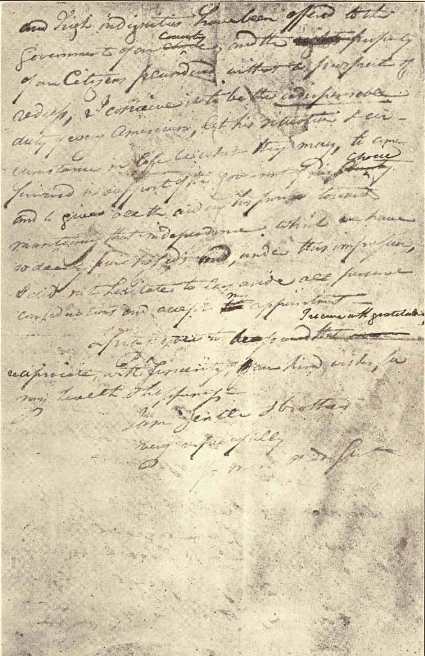 and high indignities have been offered to the
Government of our Country and the property
of our Citizens plundered without a prospect of
redress, I conceive it to be the indispensable
duty of every American, let his situation & cir-
cumstances in life be what they may, to come
forward in support of the government of his choice
and to give all the aid in his power towards
maintaining that independence which we have
so dearly purchased; and, under this impression,
I did not hesitate to lay aside all personal
considerations and accept my appointment
I receive with gratitude,
reciprocate with sincerity the kind wishes for
my health & happiness
I am Gentle & brothers
very respectfully